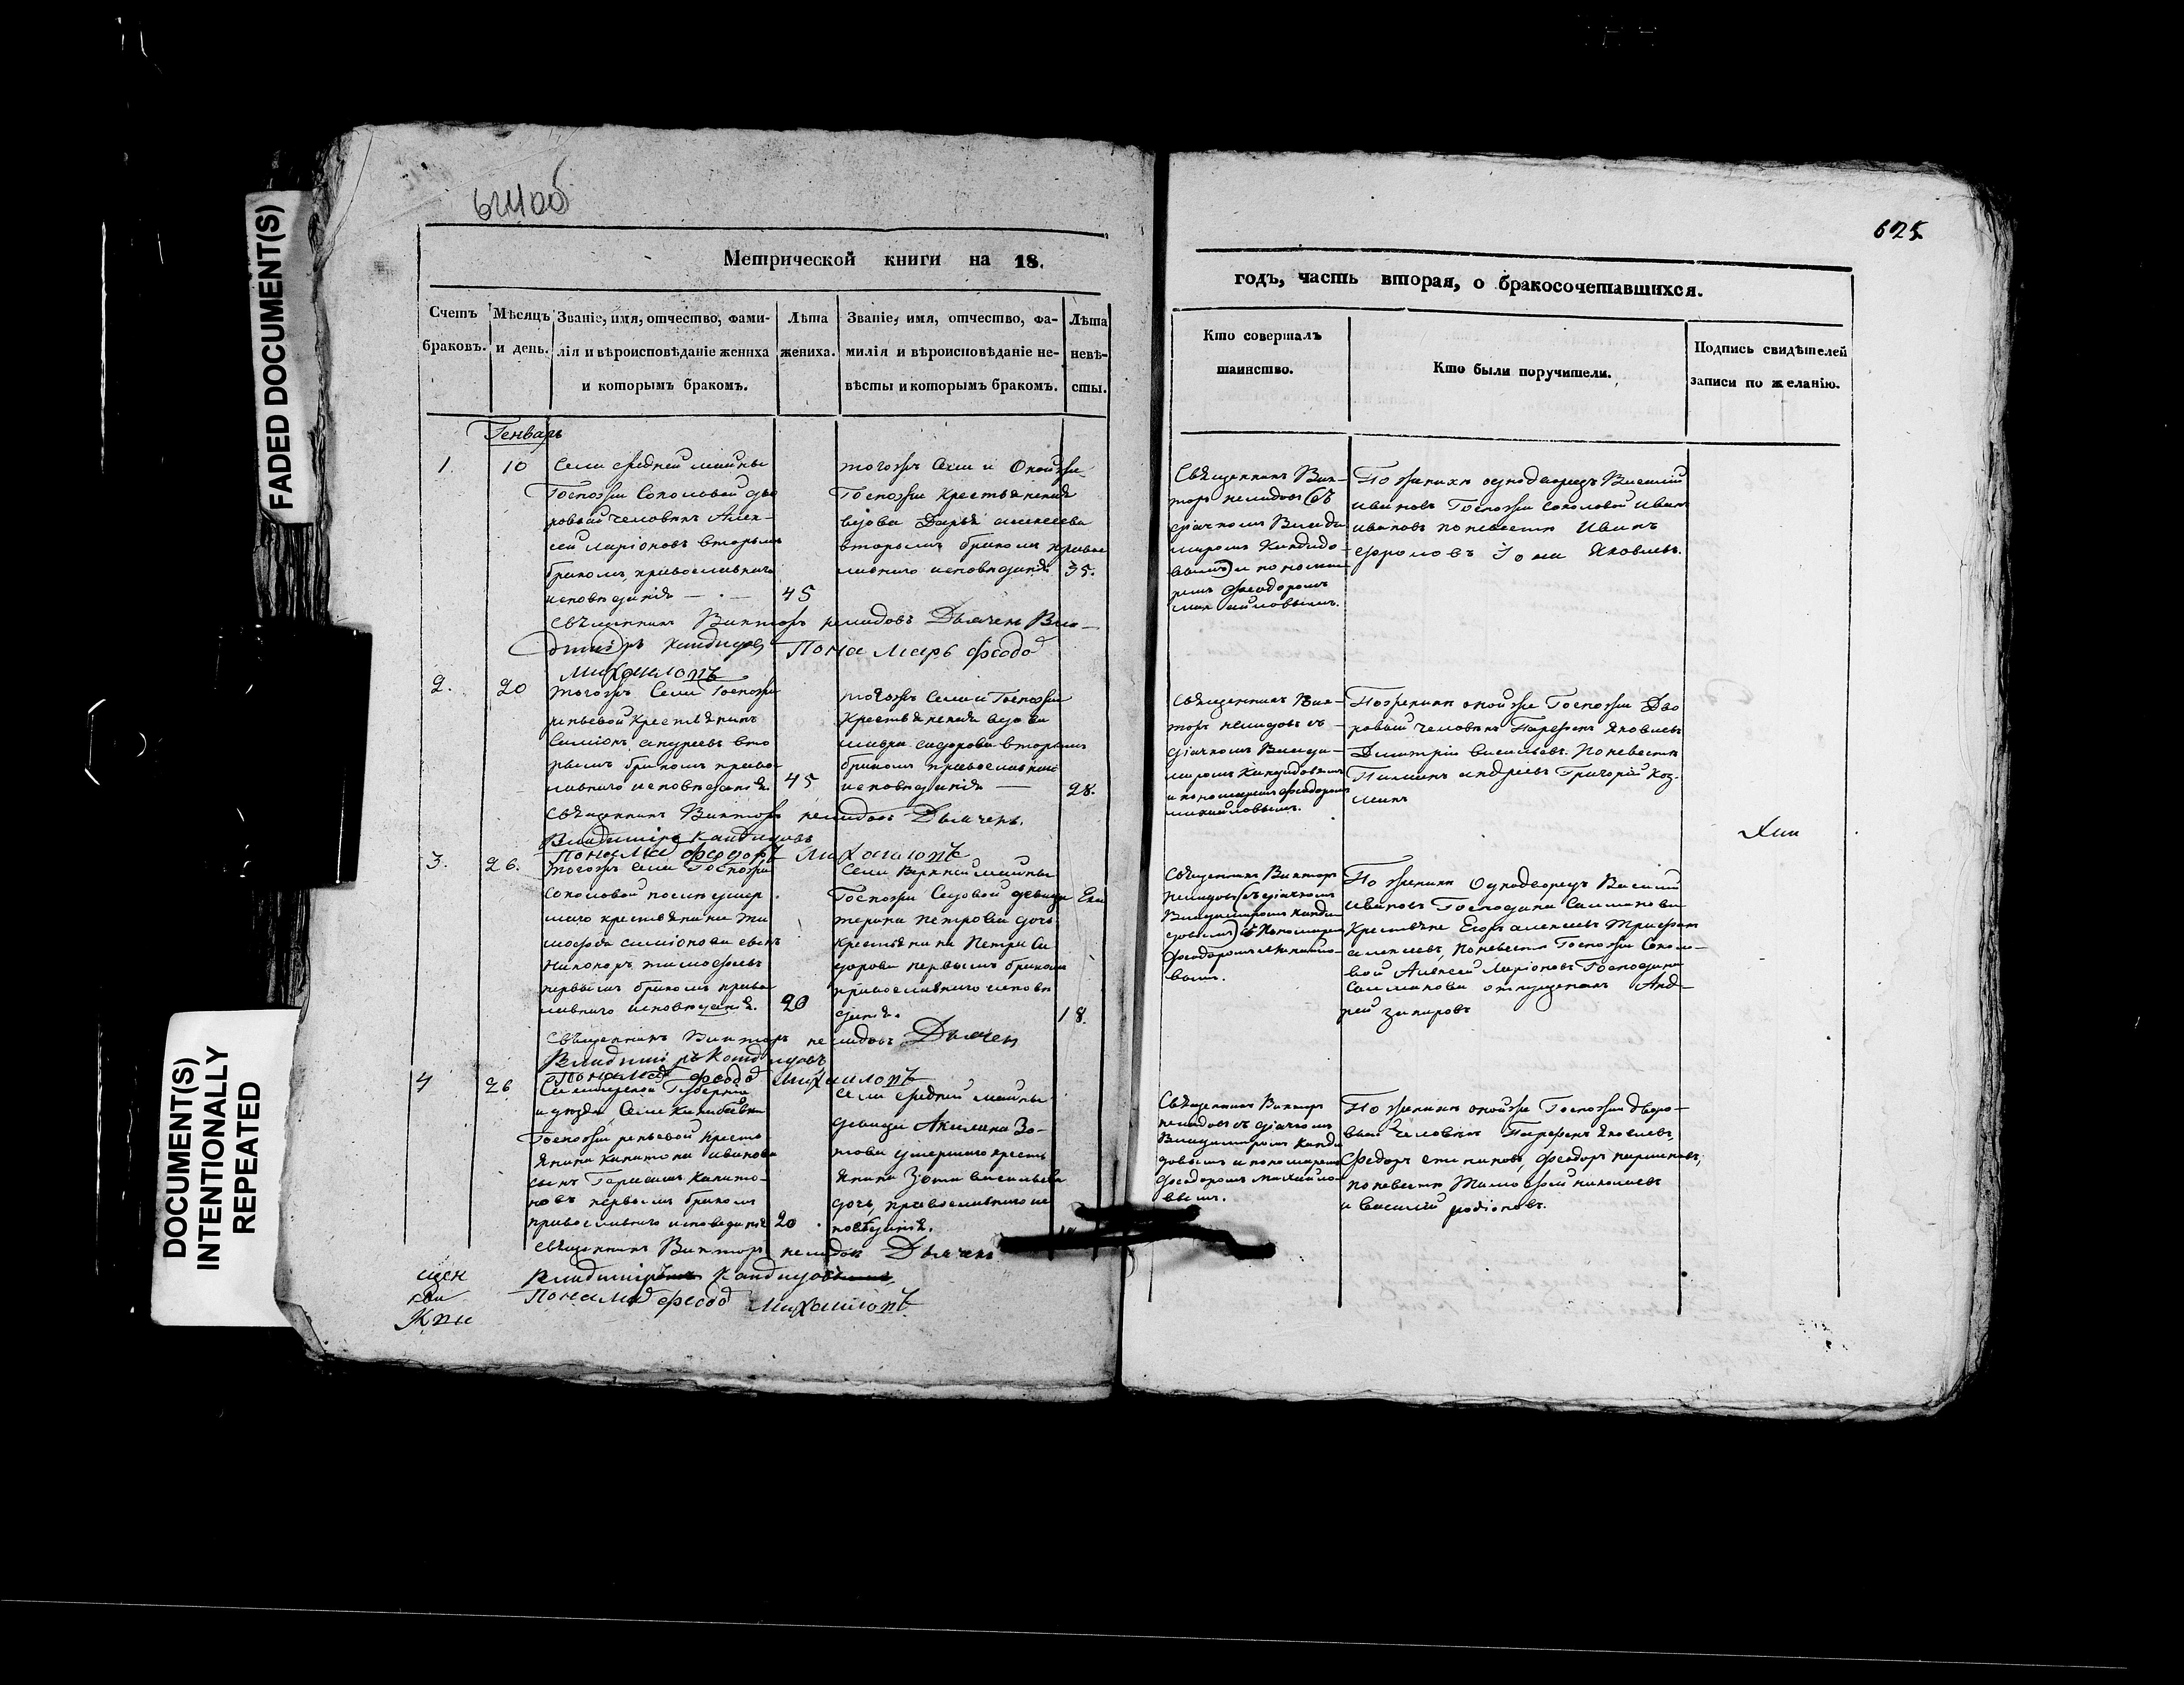 624об
625.
FADED DOCUMENT(S)
DOCUMENT(S)
INTENTIONALLY
REPEATED
Метрической книги на 18.
Счетъ
браковъ.
Мѣсяцъ
и день.
Званіе, имя, отчество, фами-
лія и вѣроисповѣданіе жениха
и которымъ бракомъ.
Лѣта
жениха.
Званіе, имя, отчество, фа-
милія и вѣроисповѣданіе не-
вѣсты и которымъ бракомъ.
Лѣта
невѣ-
сты.
Генварь
1.
10
Села средней маины
Госпожи Соколовой дво
ровый человѣкъ Алек-
сей Ларіоновъ вторымъ
бракомъ, православнаго
исповѣданія
45
тогожъ Села и Онойже
Госпожи Крестьянская
вдова Дарья алексеева
вторымъ бракомъ правос
лавнаго исповѣданія
35.
Священникъ Викторъ немидовъ Дьячекъ Вла-
димиръ Кандидов Понамарь феодо
Михаиловъ
2.
20
тогожъ Села Госпожи
репьевой Крестьянинъ
Симіонъ андреевъ вто
рымъ бракомъ право
лавнаго исповѣданія.
45
тогожъ Села и Госпожи
Крестьянская вдова
мавра сидорова вторымъ
бракомъ православнаг
исповѣданія
28.
Священникъ Викторъ немидовъ Дьячекъ.
Владимиръ Кандидовъ
Понама феодоръ Михаиловъ
3.
26.
тогожъ села Госпожи
Соколовой
маго крестьянина ти
мофея симіонова сынъ
Никоноръ тимофеевъ
первымъ бракомъ право
лавнаго исповѣданія.
20
Села Верхней маины
Госпожи Седовой девица Ека
терина петрова дочь
крестьянина Петра си
дорова первымъ бракомъ
православнаго исповѣ
данія.
18.
Священникъ Викторъ немидовъ Дьячек
Владимиръ Кандидовъ
Понамар феодо Михаиловъ
4
26
Симбирской Губерніи
и уезда Села
Госпожи репьевой Кресть
янина капитона иванова
сынъ Герасимъ Капито-
новъ первымъ бракомъ
православнаго исповеданія
20
Села средней маины
девица Акилина Зо-
това умершаго кресть
янина Зота васильева
дочь, православнаго ис
поведанія.
Священникъ Викторъ немидов Дьячекъ
Владимиръ Кандидовъ
Понамар феодо Михаиловъ
годъ, часть вторая, о бракосочетавшихся.
Кто совершалъ
таинство.
Кто были поручители.
Подпись свидѣтелей
записи по желанію.
Священникъ Вик-
торъ немидовъ съ
діячкомъ Влади
миромъ Кандидо-
вымъ и понома
ремъ феодоромъ
михаиловымъ.
По женихѣ однодворецъ Василій
ивановъ Госпожи соколовой Иван
ивановъ по невестѣ Иванъ
фроловъ Яковлевъ.
Священникъ Вик-
торъ немидовъ съ
діячкомъ Влади-
миромъ Кандидовымъ
и пономаремъ феодоромъ
михаиловымъ.
По женихѣ онойже Госпожи Дво
ровый человѣкъ Парфенъ Яковлевъ
Димитрій васильевъ. По невестѣ
Пименъ андреевъ Григорій Коз-
минъ
Священникъ Викторъ
немидовъ съ діячкомъ
Владимиромъ Канди
довымъ и Пономаремъ
феодоромъ Михаило-
вымъ.
По женихѣ Однодворецъ Василій
Ивановъ Господина
крестьяне Егоръ алексеевъ Трифонъ
алексеевъ, по невестѣ Госпожи Соколо-
вой Алексей Ларіоновъ Господина
отпущеникъ Анд-
рей
Священникъ Викторъ
немидовъ съ діячкомъ
Владимиромъ Канди
довымъ и пономаремъ
феодоромъ михаило-
вымъ.
По женихѣ онойже Госпожи дворо-
вый Человѣкъ Парфенъ Яковлевъ,
Федоръ степановъ, феодоръ
по невестѣ Тимофей николаевъ
и Василій родіоновъ.